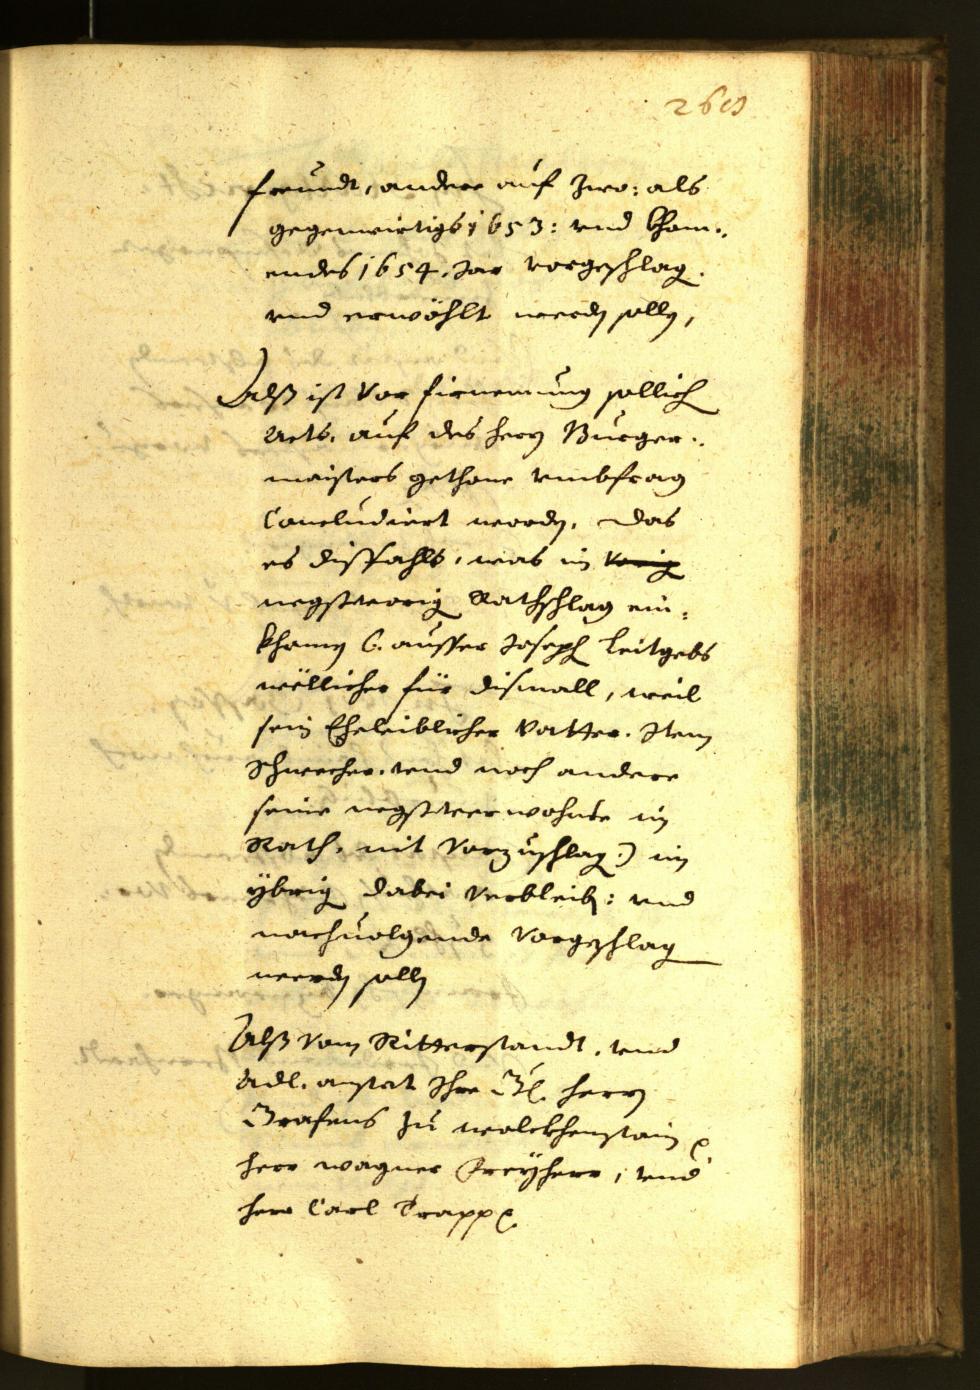 260
freundt, andere auf Zwo: als
gegenwirtigs 1653: vnd kham„
endes 1654. Jar vorgeschlag.
vnd erwöhlt werdn solln,
Alß ist vor firnemung sollich
Acts, auf des herrn Burger„
maisters gethane vmbfrag
Concludiert wordn, das
es disfahls, was in vorig
negstvorig Rathschlag ein„
khomn (: ausser Joseph Leitgebs
wellicher für dismall, weil
sein Eheleiblicher Vatter. Item
Schwecher. vnd noch andere
seine negstverwohnte in
Rath, nit vorzuschlag:) im
ÿbrig dabei verbleibn: vnd
nachuolgende vorgeschlag
werdn solln
Alß vom Ritterstandt, vnd
Adl. anstat Ihre Gl. herrn
Grafens zu wolckhenstain
herr wagner Freÿherr, vnd
herr Carl Trapp